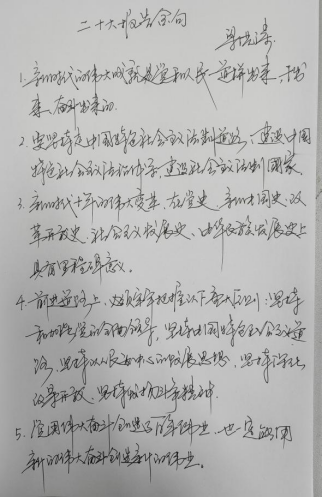 二十大报告金句
1.新时代的伟大成就是党和人民一道拼出来、干出
来、奋斗出来的
2.要坚持走中国特色社会主义法治道路，建设中国
特色社会主义法治体系，建设社会主义法治国家
3.新时代十年的伟大变革，在党史、新中国史、改
革开放史、社会主义发展史、中华民族发展史上
具有里程碑意义。
4.前进道路上，必须牢牢把握以下重大原则：坚持
和加强党的全面领导，坚持中国特色社会主义道
路，坚持以人民为中心的发展思想，坚持深化
改革开放，坚持发扬斗争精神
5.党用伟大奋斗创造了百年伟业，也一定能用
新的伟大奋斗创造新的伟业。